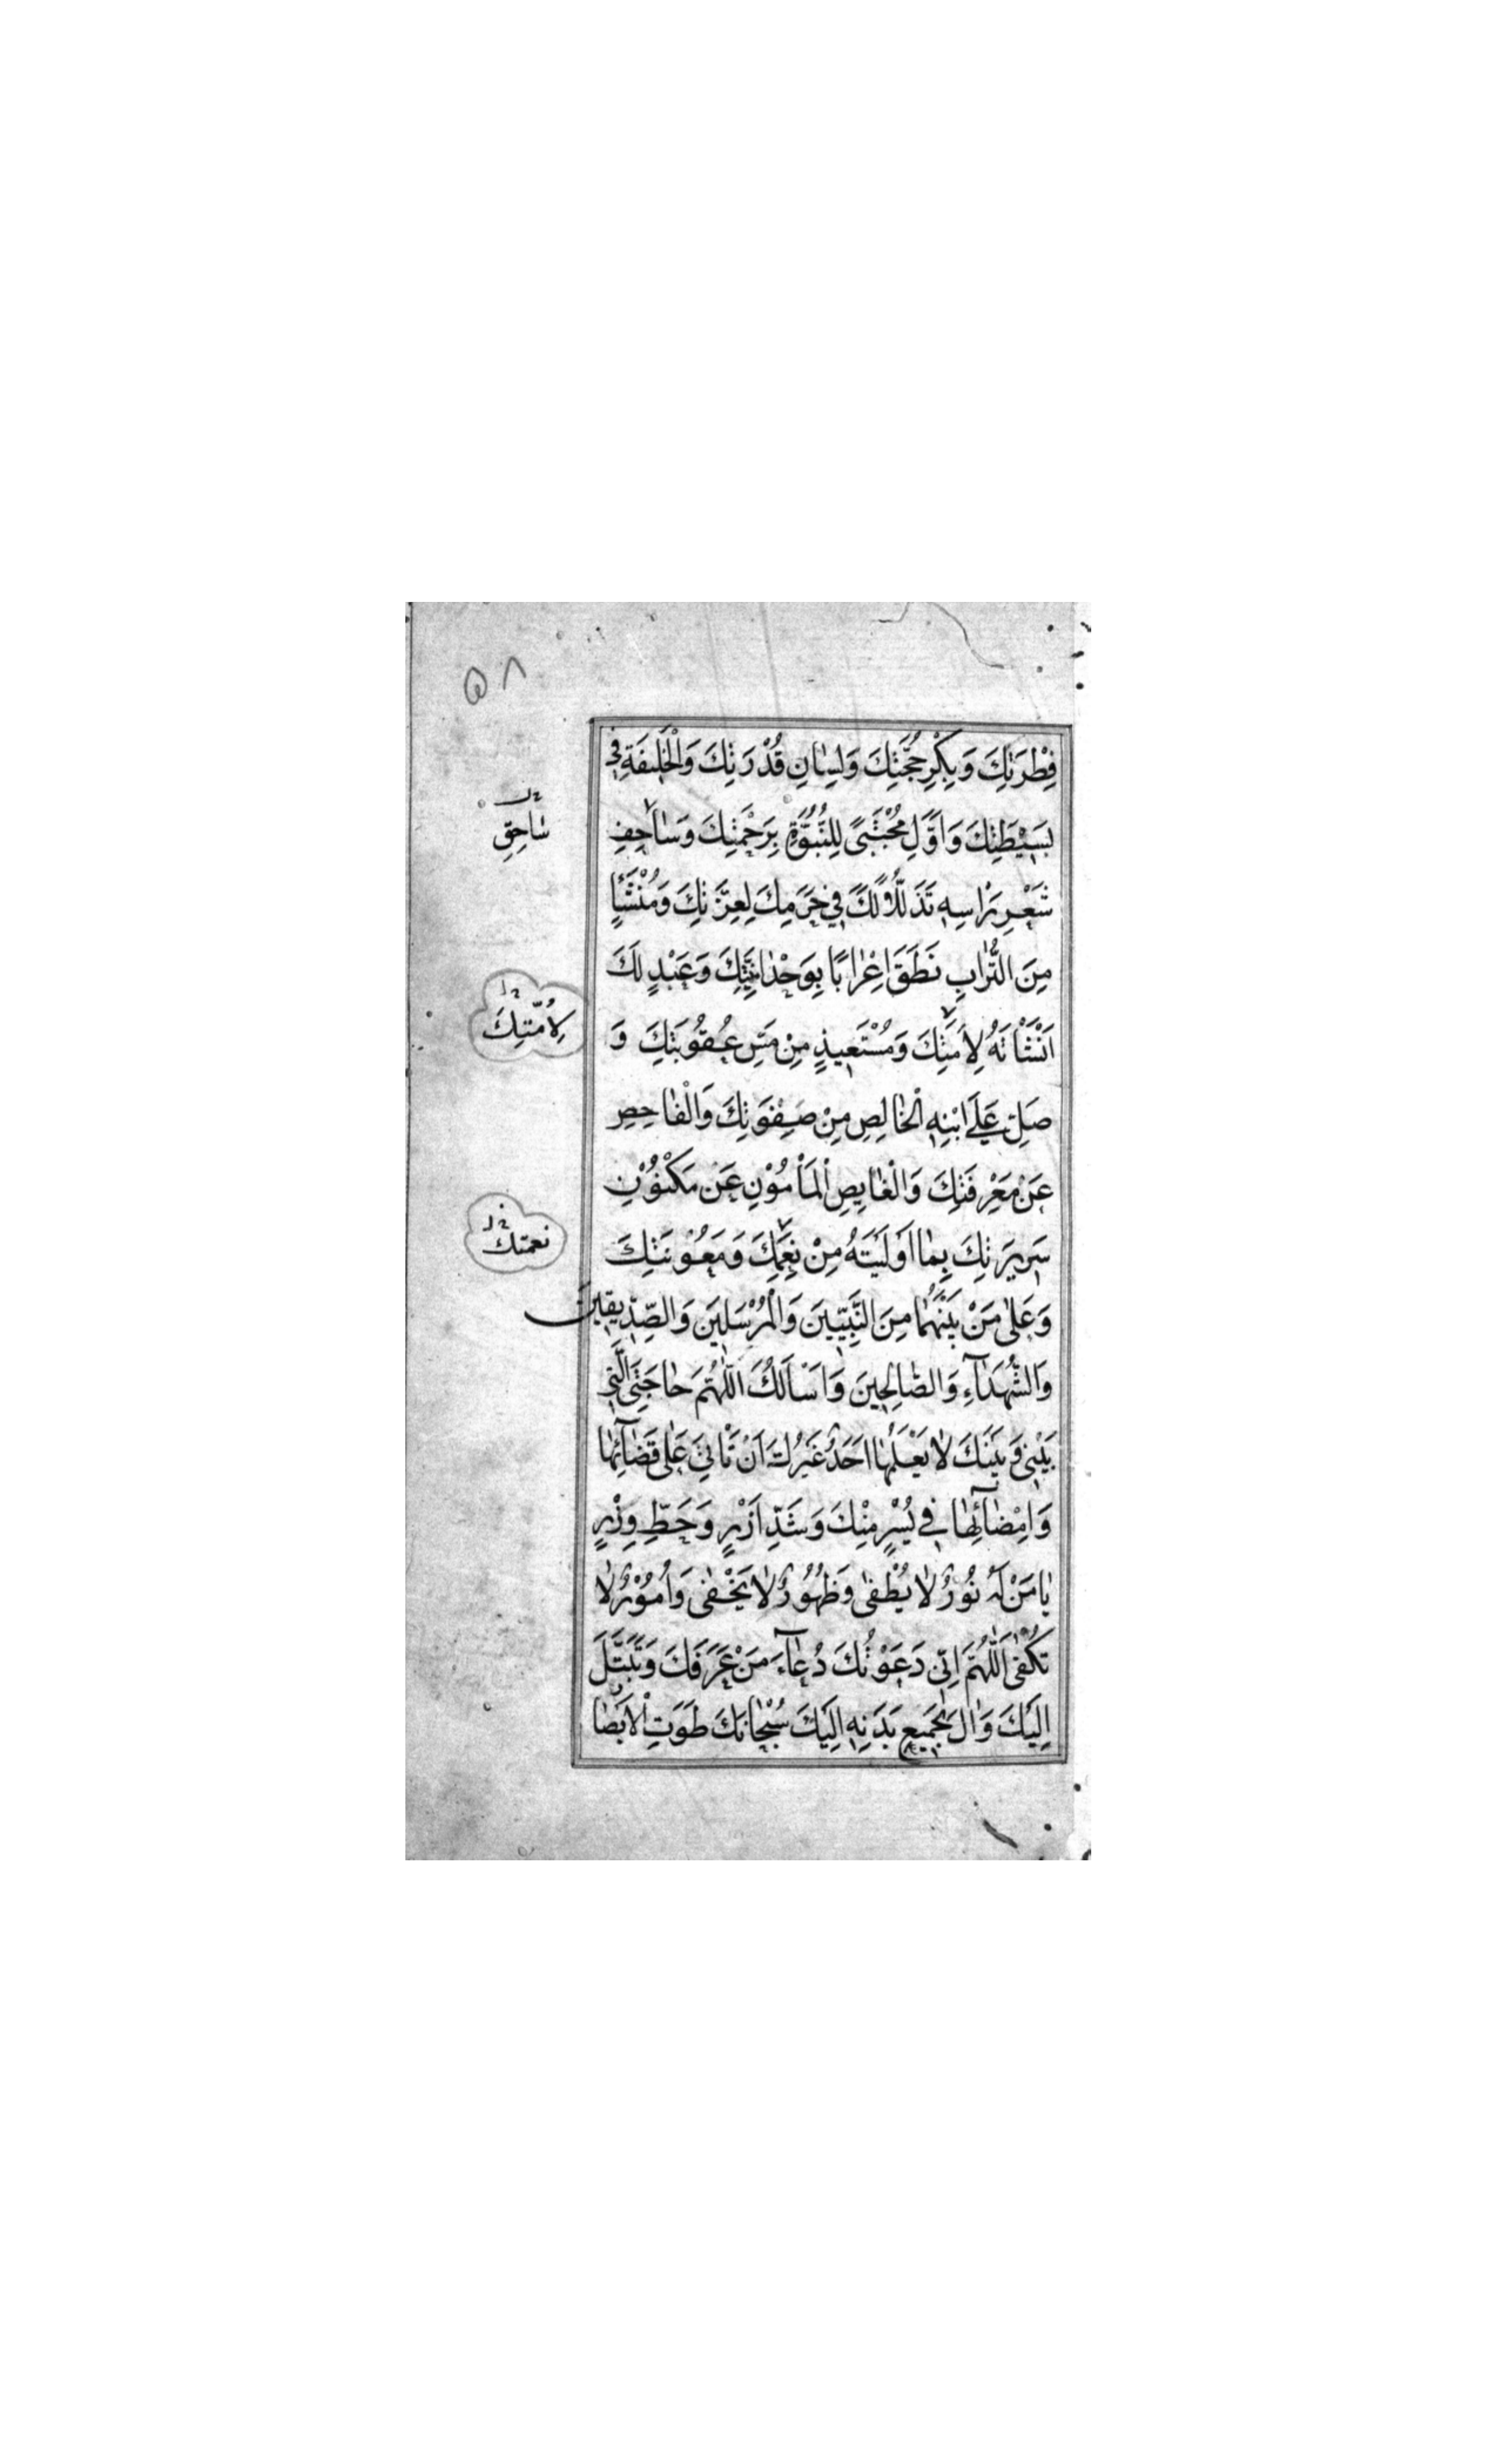 ۵۸
فِطْرَتِكَ وَبِكْرِ حُجَّتِكَ وَلِسٰانِ قُدْرَتِكَ وَالْخَلِيفَةِ فِي
بَسِيْطَتِكَ وَاَوَّلِ مُجْتَبًى لِلنُّبُوَّةِ بِرَحْمَتِكَ وَسٰاحِفِ
سٰاحِقِ
شَعْرِ رَاْسِهِ تَذَلُّلاً لَكَ فِي حَرَمِكَ لِعِزَّتِكَ وَمُنْشَاٍ
مِنَ التُّرٰابِ نَطَقَ اِعْرٰابًا بِوَحْدٰانِيَّتِكَ وَعَبْدٍ لَكَ
اَنْشَاْتَهُ لِاَمَتِكَ وَمُسْتَعِيذٍ مِنْ مَسِّ عُقُوبَتِكَ وَ
لِاُمَّتِكَ
صَلِّ عَلَى ابْنِهِ الْخٰالِصِ مِنْ صَفْوَتِكَ وَالْفٰاحِصِ
عَنْ مَعْرِفَتِكَ وَالْغٰايِصِ الْمَأْمُوْنِ عَنْ مَكْنُوْنِ
سَرِيرَتِكَ بِمٰا اَوْلَيْتَهُ مِنْ نِعَمِكَ وَمَعُوْنَتِكَ
نعمتك
وَعَلٰى مَنْ بَيْنَهُمٰا مِنَ النَّبِيّيِنَ وَالْمُرْسَلِينَ وَالصِّدِّيقِينَ
وَالشُّهَدٰآءِ وَالصّٰالِحِينَ وَاَسْأَلُكَ اللّٰهُمَّ حٰاجَتِيَ الَّتِي
بَيْنِي وَبَيْنَكَ لٰا يَعْلَمُهٰا اَحَدٌ غَيْرُكَ اَنْ تَأْتِيَ عَلٰى قَضٰآئِهٰا
وَاِمْضٰآئِهٰا فِي يُسْرٍ مِنْكَ وَشَدِّ اَزْرٍ وَحَطِّ وِزْرٍ
يٰا مَنْ لَهُ نُورٌ لٰا يُطْفٰى وَظُهُورٌ لٰا يَخْفٰى وَاُمُوْرٌ لٰا
تُكْفٰى اَللّٰهُمَّ اِنِّي دَعَوْتُكَ دُعٰآءَ مَنْ عَرَفَكَ وَتَبَتَّلَ
اِلَيْكَ وَاٰلَ بِجَمِيعِ بَدَنِهِ اِلَيْكَ سُبْحٰانَكَ طَوَتِ الْاَبْصٰا